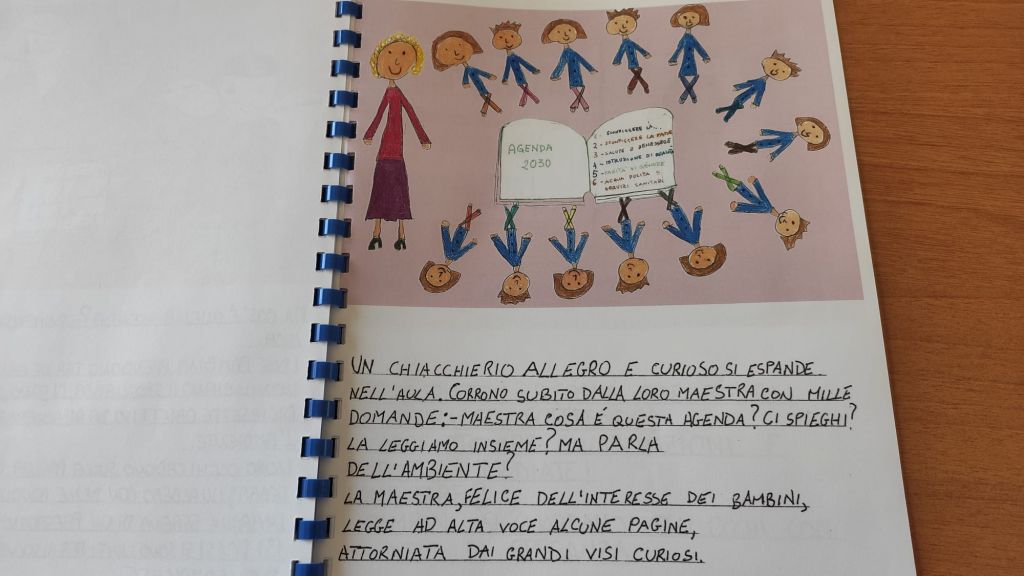 AGENDA
2030
1 - SCONFIGGERE LA...
2 - SCONFIGGERE LA FAME
3 - SALUTE E BENESSERE
4 - ISTRUZIONE DI
5 - PARITÀ DI GENERE
6 - ACQUA PULITA E
SERVIZI SANITARI
UN CHIACCHIERIO ALLEGRO E CURIOSO SI ESPANDE
NELL'AULA. CORRONO SUBITO DALLA LORO MAESTRA CON MILLE
DOMANDE:-MAESTRA COSA É QUESTA AGENDA? CI SPIEGHI?
LA LEGGIAMO INSIEME? MA PARLA
DELL'AMBIENTE?
LA MAESTRA, FELICE DELL'INTERESSE DEI BAMBINI,
LEGGE AD ALTA VOCE ALCUNE PAGINE,
ATTORNIATA DAI GRANDI VISI CURIOSI.